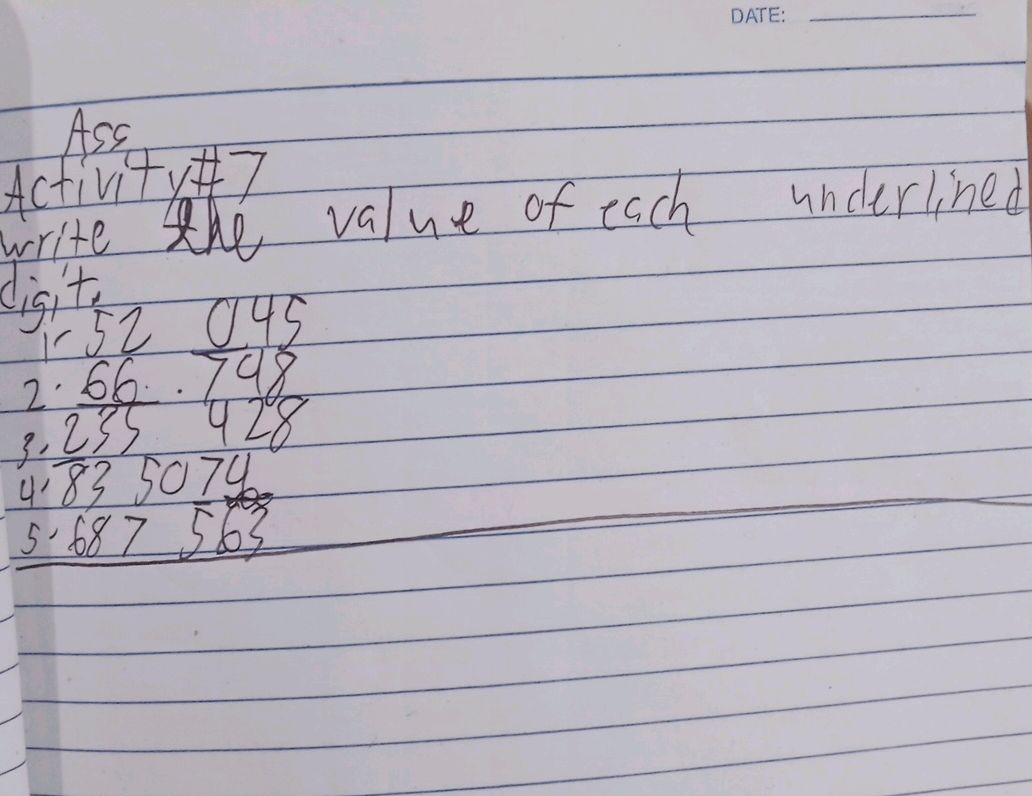 DATE:
Ass
Activity#7
write the value of each underlined
digit.
1- 52 045
2. 66 . 798
3. 235 428
4. 83 5074
5. 687 563